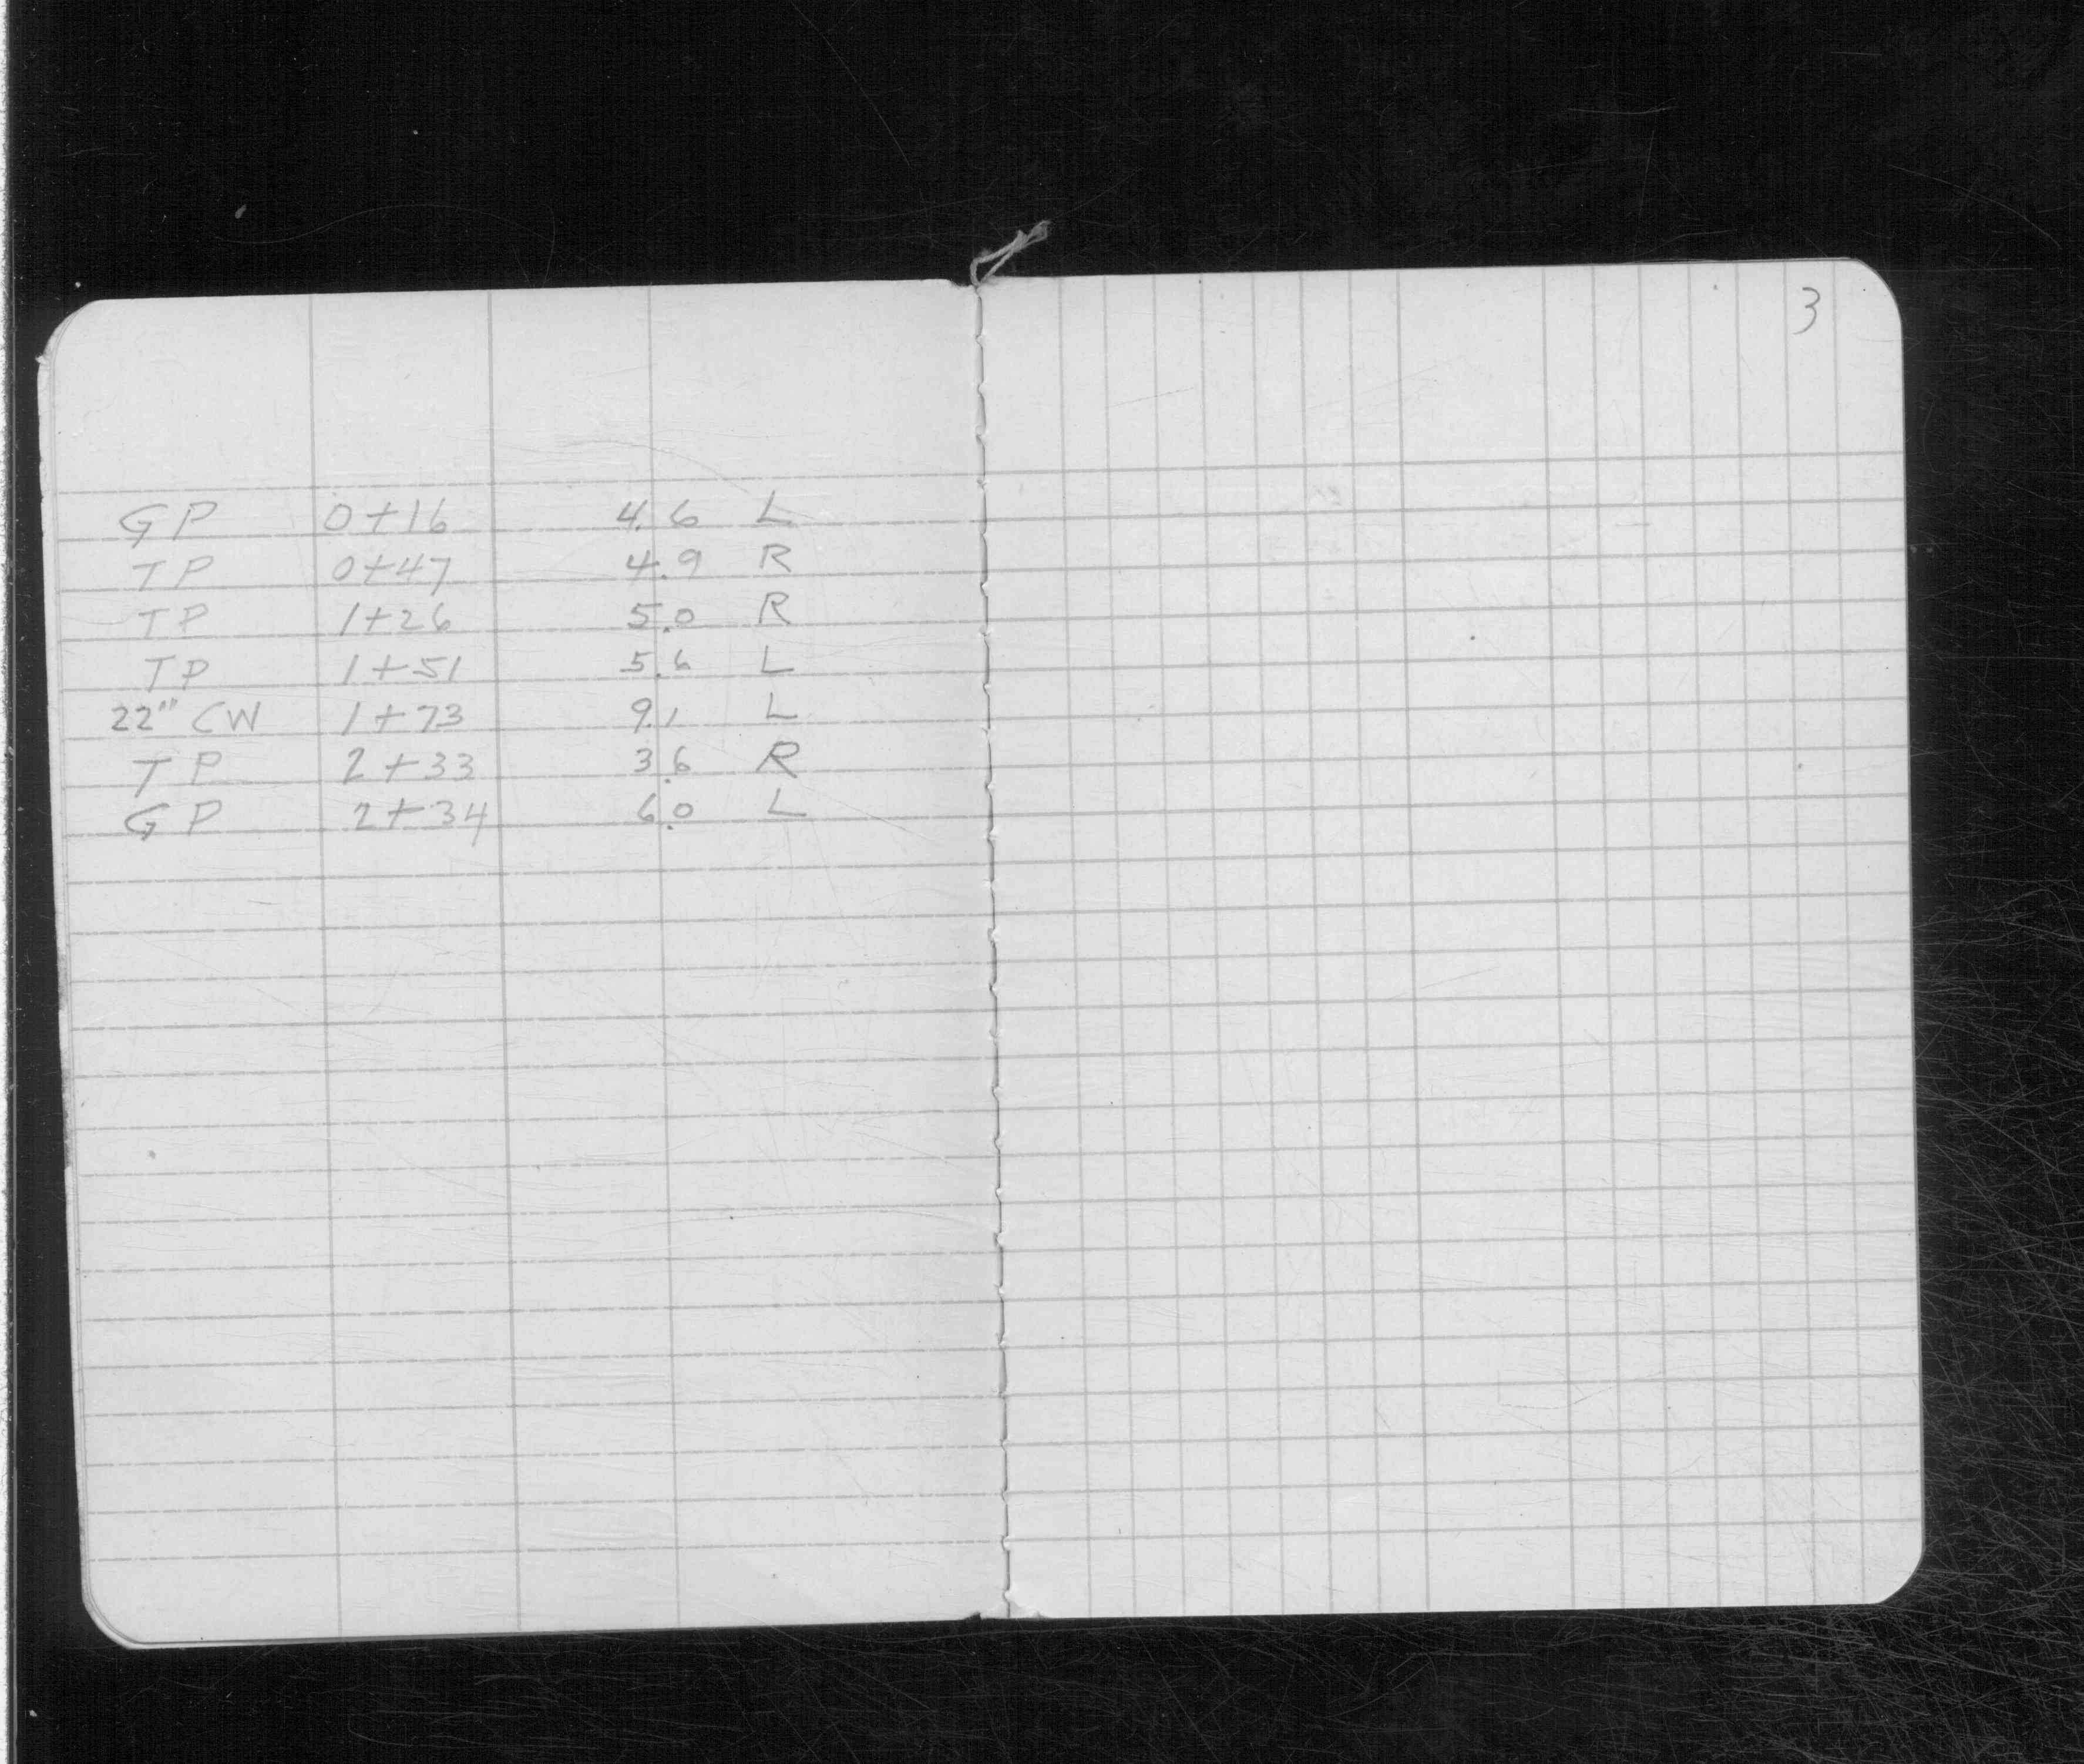 3
GP 0+16 4.6 L
TP 0+47 4.9 R
TP 1+26 5.0 R
TP 1+51 5.6 L
22" CW 1+73 9.1 L
TP 2+33 3.6 R
GP 2+34 6.0 L